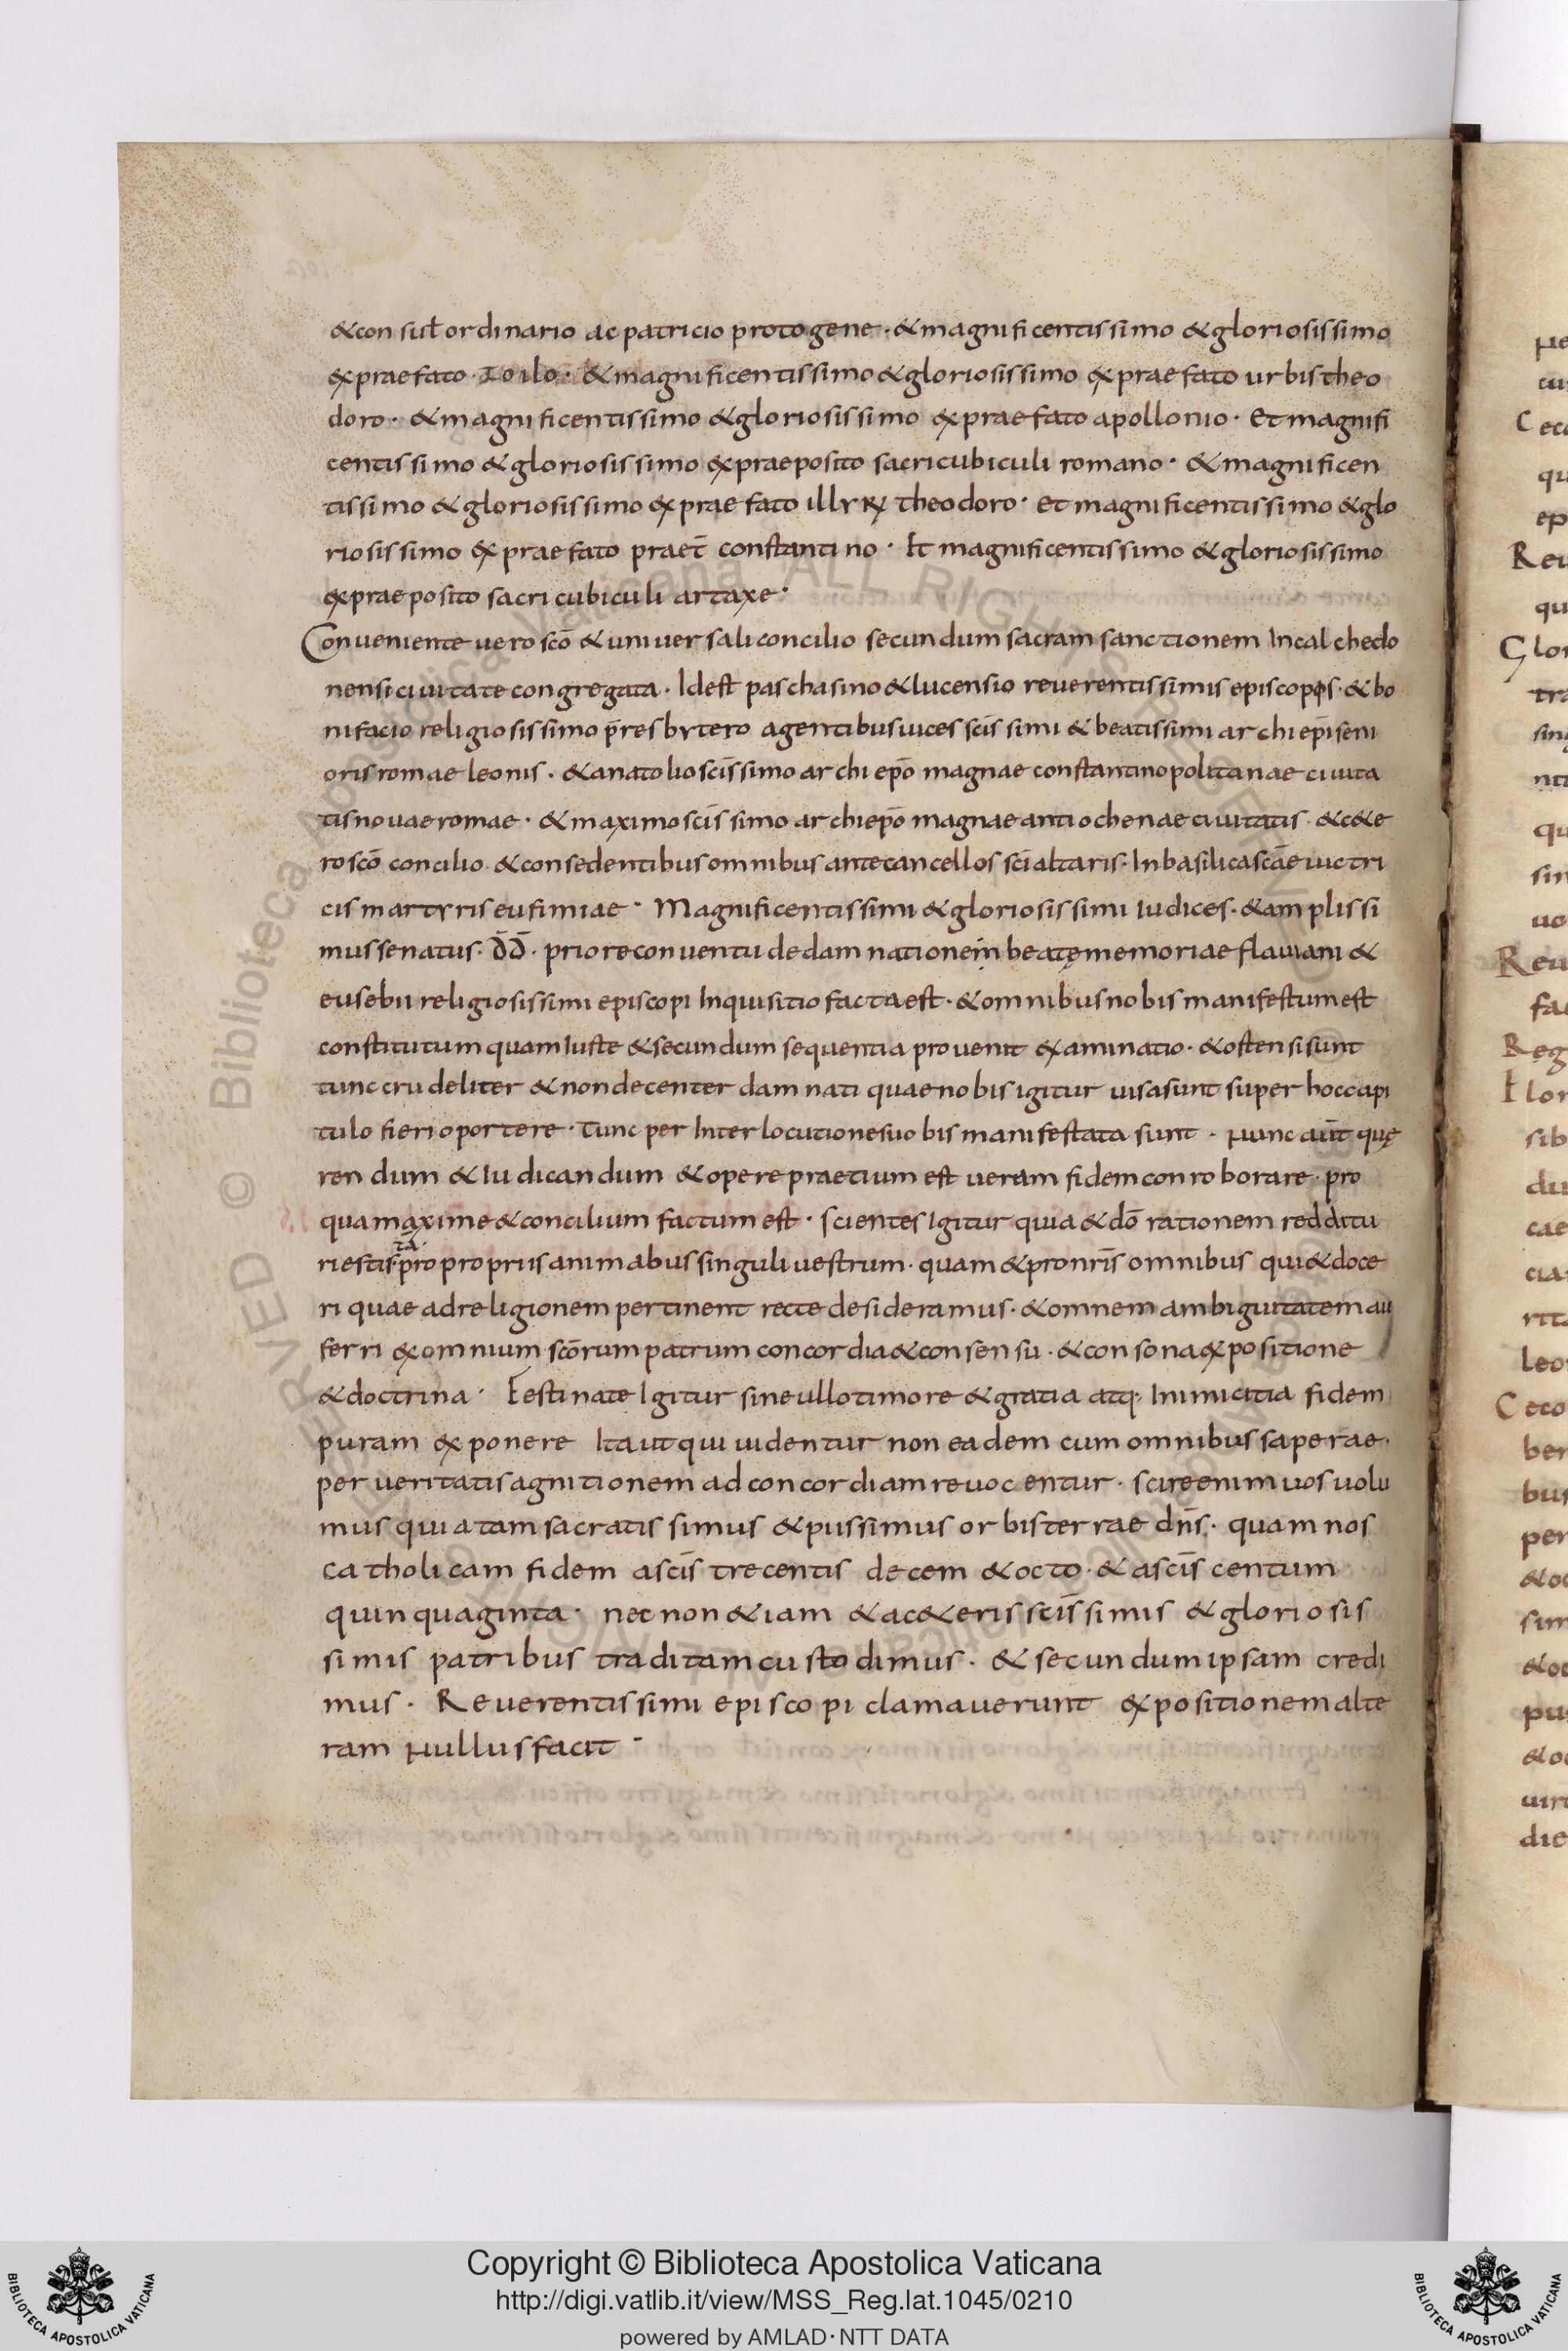 &consul̄ ordinario ac patricio protogene · & magnificentissimo & gloriosissimo
ex praefato · Zoilo · & magnificentissimo & gloriosissimo ex praefato urbis theo
doro · & magnificentissimo & gloriosissimo ex praefato apollonio · Et magnifi
centissimo & gloriosissimo ex praeposito sacri cubiculi romano · & magnificen
tissimo & gloriosissimo ex praefato theodoro · Et magnificentissimo & glo
riosissimo ex praefato praet̄ constantino · Et magnificentissimo & gloriosissimo
ex praeposito sacri cubiculi artaxe ·
Conueniente uero scō & uniuersali concilio secundum sacram sanctionem In calchedo
nensi ciuitate congregata · Id est paschasino & lucensio reuerentissimis episcopis · & bo
nifacio religiosissimo p̄resbytero agentibus uices scīssimi & beatissimi archiepī seni
oris romae leonis · & anatolio scīssimo archiepō magnae constantinopolitanae ciuita
tis nouae romae · & maximo scīssimo archiepō magnae antiochenae ciuitatis · & c&e
ro scō concilio · & consedentibus omnibus ante cancellos scī altaris · In basilica scāe uictri
cis martyris eufimiae · Magnificentissimi & gloriosissimi Iudices · & amplissi
mus senatus · D̄D̄ · priore conuentu de damnatione in beatę memoriae flauiani &
eusebii religiosissimi episcopi Inquisitio facta est · & omnibus nobis manifestum est
constitutum quam Iuste & secundum sequentia prouenit examinatio · & ostensi sunt
tunc crudeliter & non decenter damnati quae nobis igitur uisa sunt super hoc capi
tulo fieri oportere · Tunc per Interlocutiones uobis manifestata sunt · Nunc aūt quę
rendum & Iudicandum & opere praetium est ueram fidem conroborare · pro
qua maxime & concilium factum est · scientes Igitur quia & dō rationem redditu
ri estis · tā pro propriis animabus singuli uestrum · quam & pro nrīs omnibus qui & doce
ri quae ad religionem pertinent recte desideramus · & omnem ambiguitatem au
ferri ex omnium scōrum patrum concordia & consensu · & consona expositione
& doctrina · Festinate Igitur sine ullo timore & gratia atq· Inimicitia fidem
puram exponere Ita ut qui uidentur non eadem cum omnibus saperae ·
per ueritatis agnitionem ad concordiam reuocentur · scire enim uos uolu
mus quia tam sacratissimus & piissimus orbis terrae dn̄s · quam nos
catholicam fidem a scīs trecentis decem & octo · & a scīs centum
quinquaginta · nec non &iam & a c&eris scīssimis & gloriosis
simis patribus traditam custodimus · & secundum ipsam credi
mus · Reuerentissimi episcopi clamauerunt expositionem alte
ram Nullus facit ·
Copyright © Biblioteca Apostolica Vaticana
http://digi.vatlib.it/view/MSS_Reg.lat.1045/0210
powered by AMLAD·NTT DATA
BIBLIOTECA APOSTOLICA VATICANA
BIBLIOTECA APOSTOLICA VATICANA